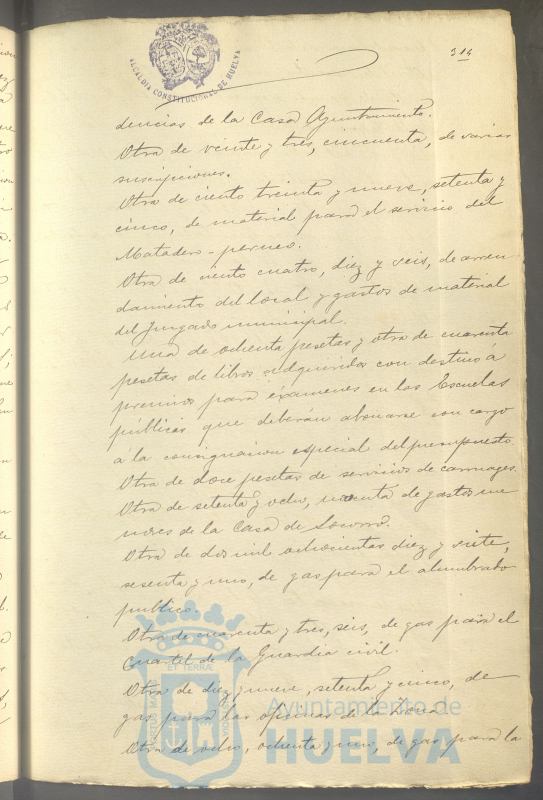 314
ALCALDIA CONSTITUCIONAL DE HUELVA
dencias de la Casa Ayuntamiento.
Otra de veinte y tres, cincuenta, de varias
suscripciones.
Otra de ciento treinta y nueve, setenta y
cinco, de material para el servicio del
Matadero-perneo.
Otra de ciento cuatro, diez y seis, de arren
damiento del local y gastos de material
del Juzgado municipal.
Una de ochenta pesetas y otra de cuarenta
pesetas de libros adquiridos con destino á
premios para éxamenes en las Escuelas
públicas que deberán abonarse con cargo
á la consignacion especial del presupuesto.
Otra de doce pesetas de servicios de carruages.
Otra de setenta y ocho, noventa de gastos me
nores de la Casa de Socorro.
Otra de dos mil ochocientas diez y siete,
sesenta y uno, de gas para el alumbrado
publico.
Otra de cuarenta y tres, seis, de gas para el
Cuartel de la Guardia civil.
Otra de diez y nueve, setenta y cinco, de
gas para las oficinas de la Zona.
Otra de ocho, ochenta y uno, de gas para la
ET TERRÆ
Ayuntamiento de
HUELVA